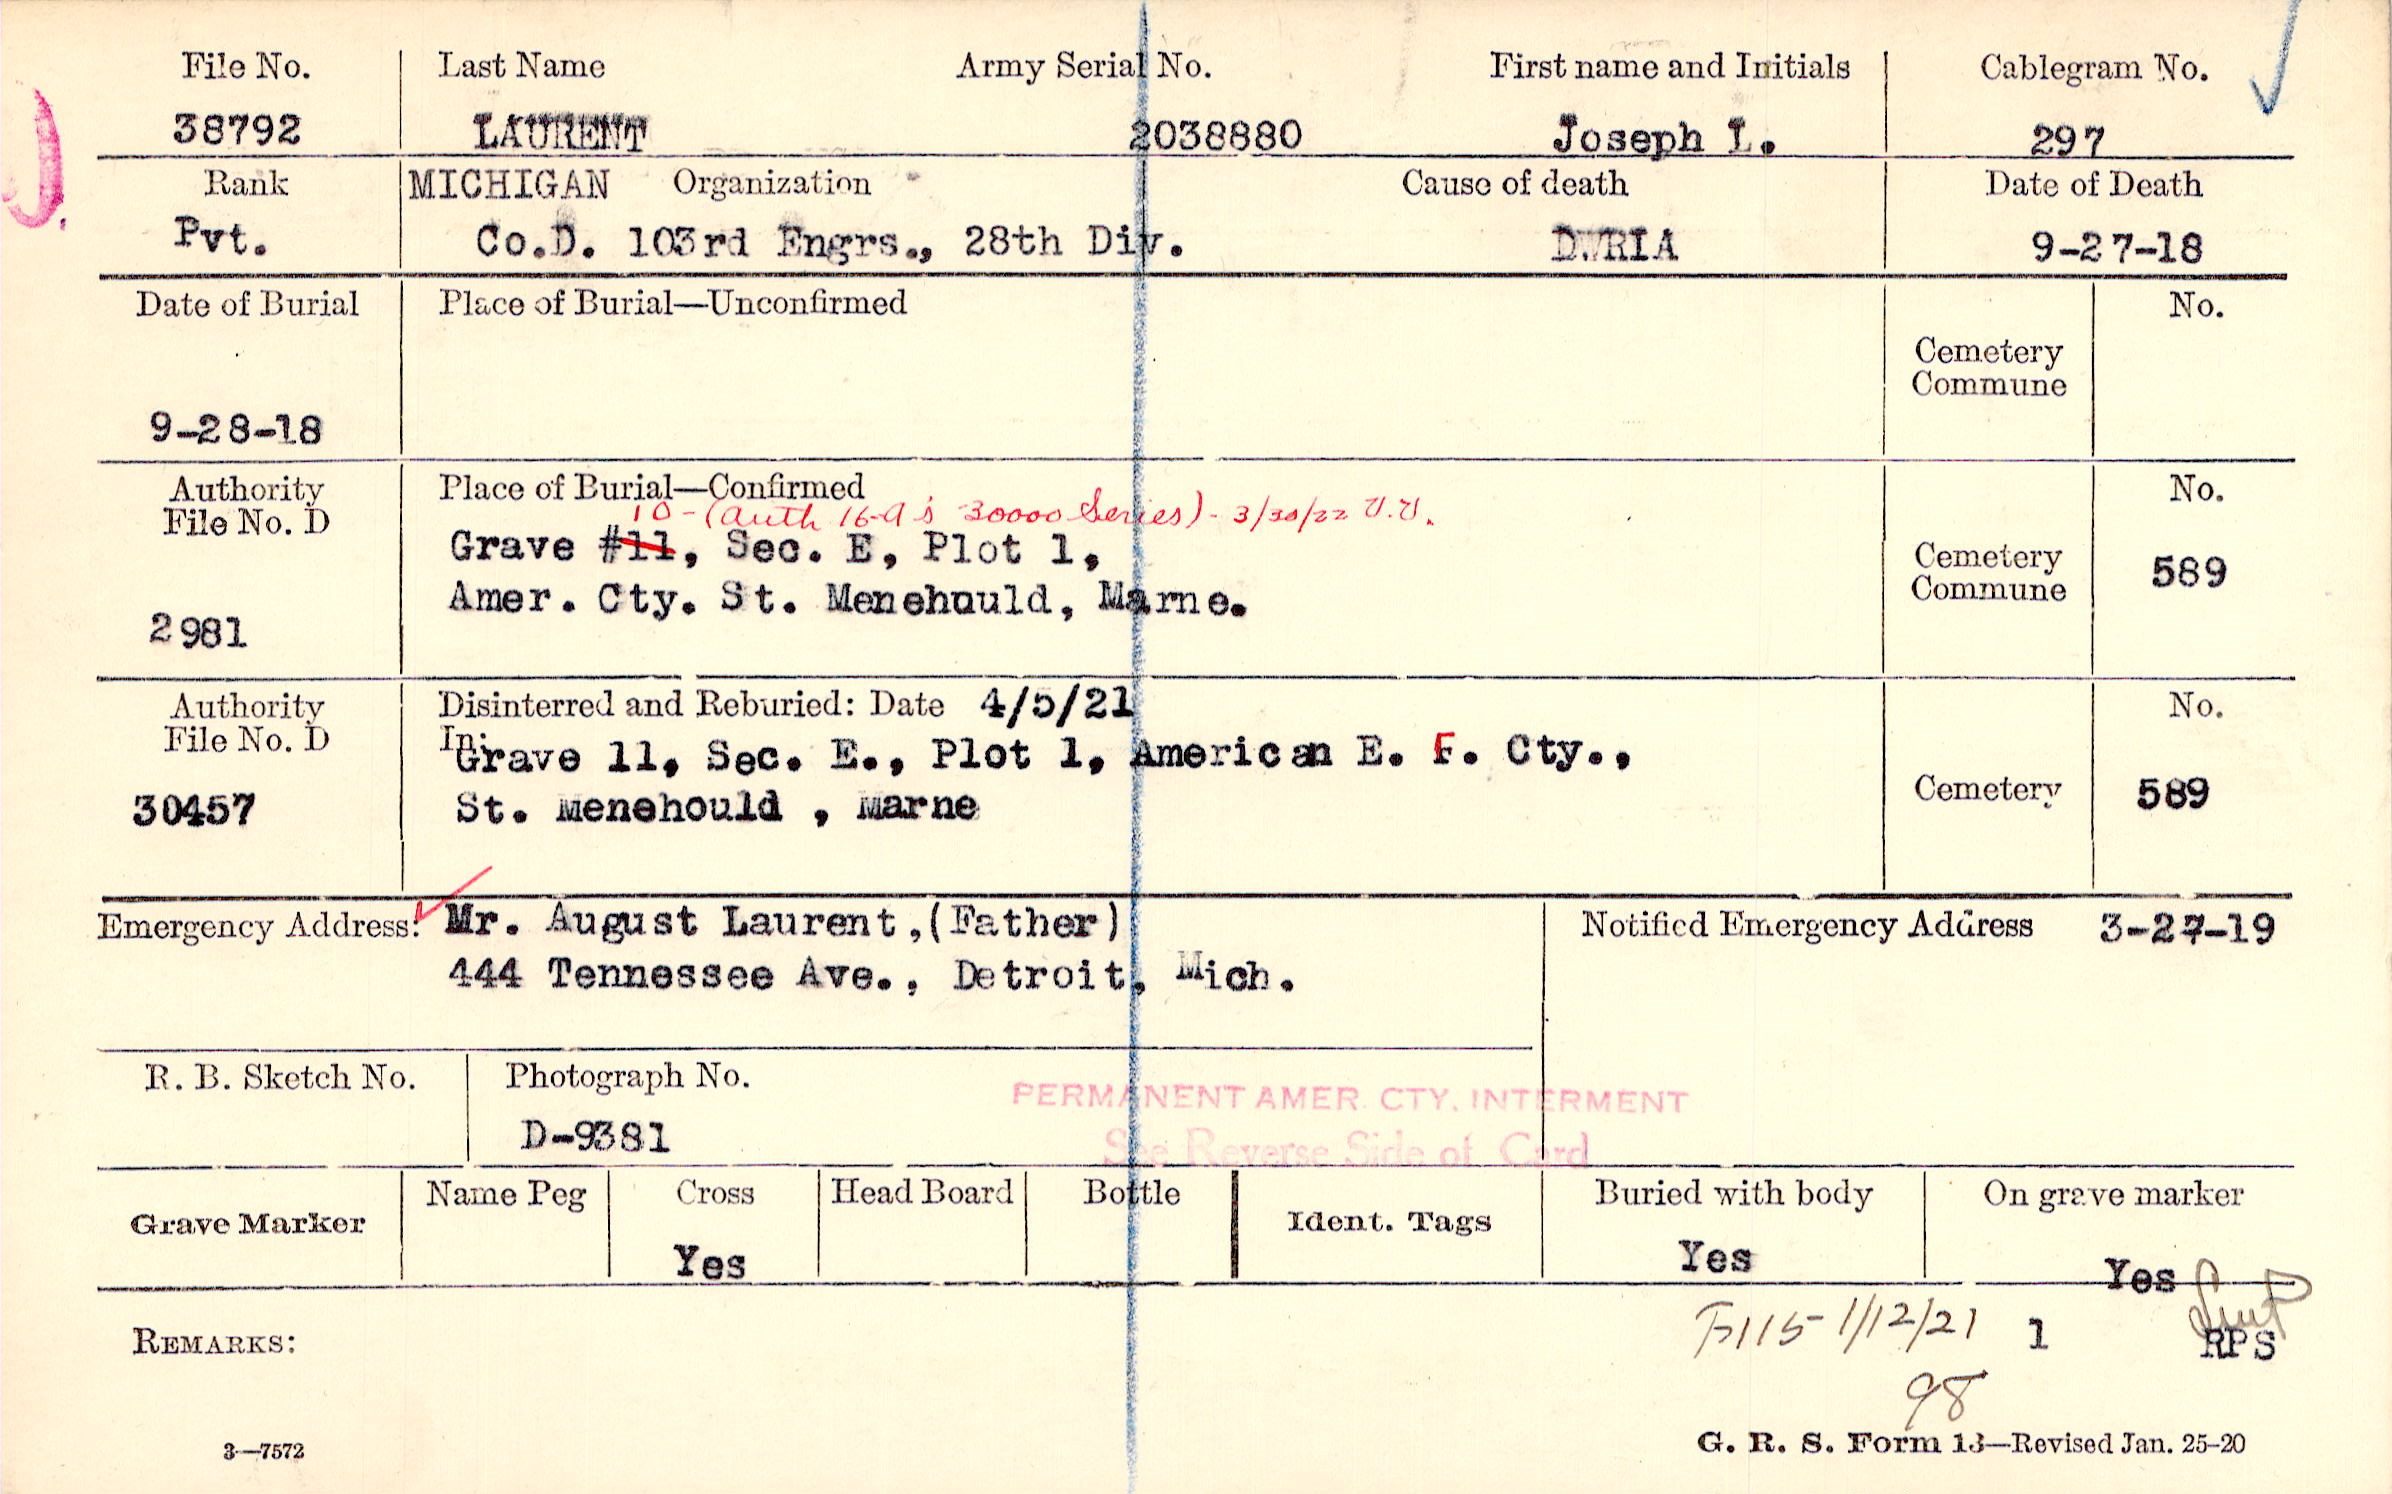 File No. Last Name Army Serial No. First name and Initials Cablegram No.
38792 LAURENT 2038880 Joseph L. 297
Rank MICHIGAN Organization Cause of death Date of Death
Pvt. Co.D. 103rd Engrs., 28th Div. DWRIA 9-27-18
Date of Burial Place of Burial—Unconfirmed No.
Cemetery
Commune
9-28-18
Authority Place of Burial—Confirmed No.
File No. D 10-(auth 16-a's 30000 Series)- 3/30/22 V.V.
Grave #11, Sec. E, Plot 1,
Cemetery
Commune 589
Amer. Cty. St. Menehould, Marne.
2981
Authority Disinterred and Reburied: Date 4/5/21 No.
File No. D In:
Grave 11, Sec. E., Plot 1, American E. F. Cty.,
30457 St. Menehould , Marne Cemetery 589
Emergency Address: Mr. August Laurent,(Father) Notified Emergency Address 3-27-19
444 Tennessee Ave., Detroit, Mich.
R. B. Sketch No. Photograph No.
D-9381
PERMANENT AMER. CTY. INTERMENT
See Reverse Side of Card
Grave Marker Name Peg Cross Head Board Bottle Ident. Tags Buried with body On grave marker
Yes Yes Yes
REMARKS: F115 1/12/21 1 RPS
98
3—7572 G. R. S. Form 13—Revised Jan. 25-20